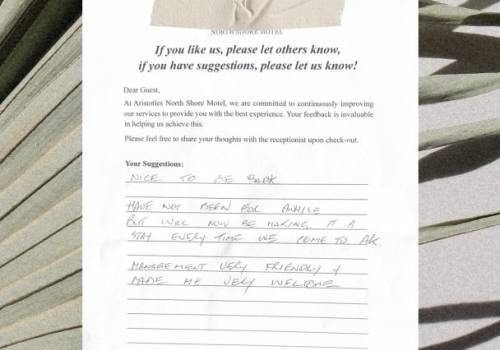 NORTH SHORE MOTEL
If you like us, please let others know,
if you have suggestions, please let us know!
Dear Guest,
At Aristotles North Shore Motel, we are committed to continuously improving
our services to provide you with the best experience. Your feedback is invaluable
in helping us achieve this.
Please feel free to share your thoughts with the receptionist upon check-out.
Your Suggestions:
NICE TO BE BACK
HAVE NOT BEEN FOR AWHILE
BUT WILL NOW BE MAKING IT A
STAY EVERY TIME WE COME TO AK.
MANAGEMENT VERY FRIENDLY &
MADE ME VERY WELCOME